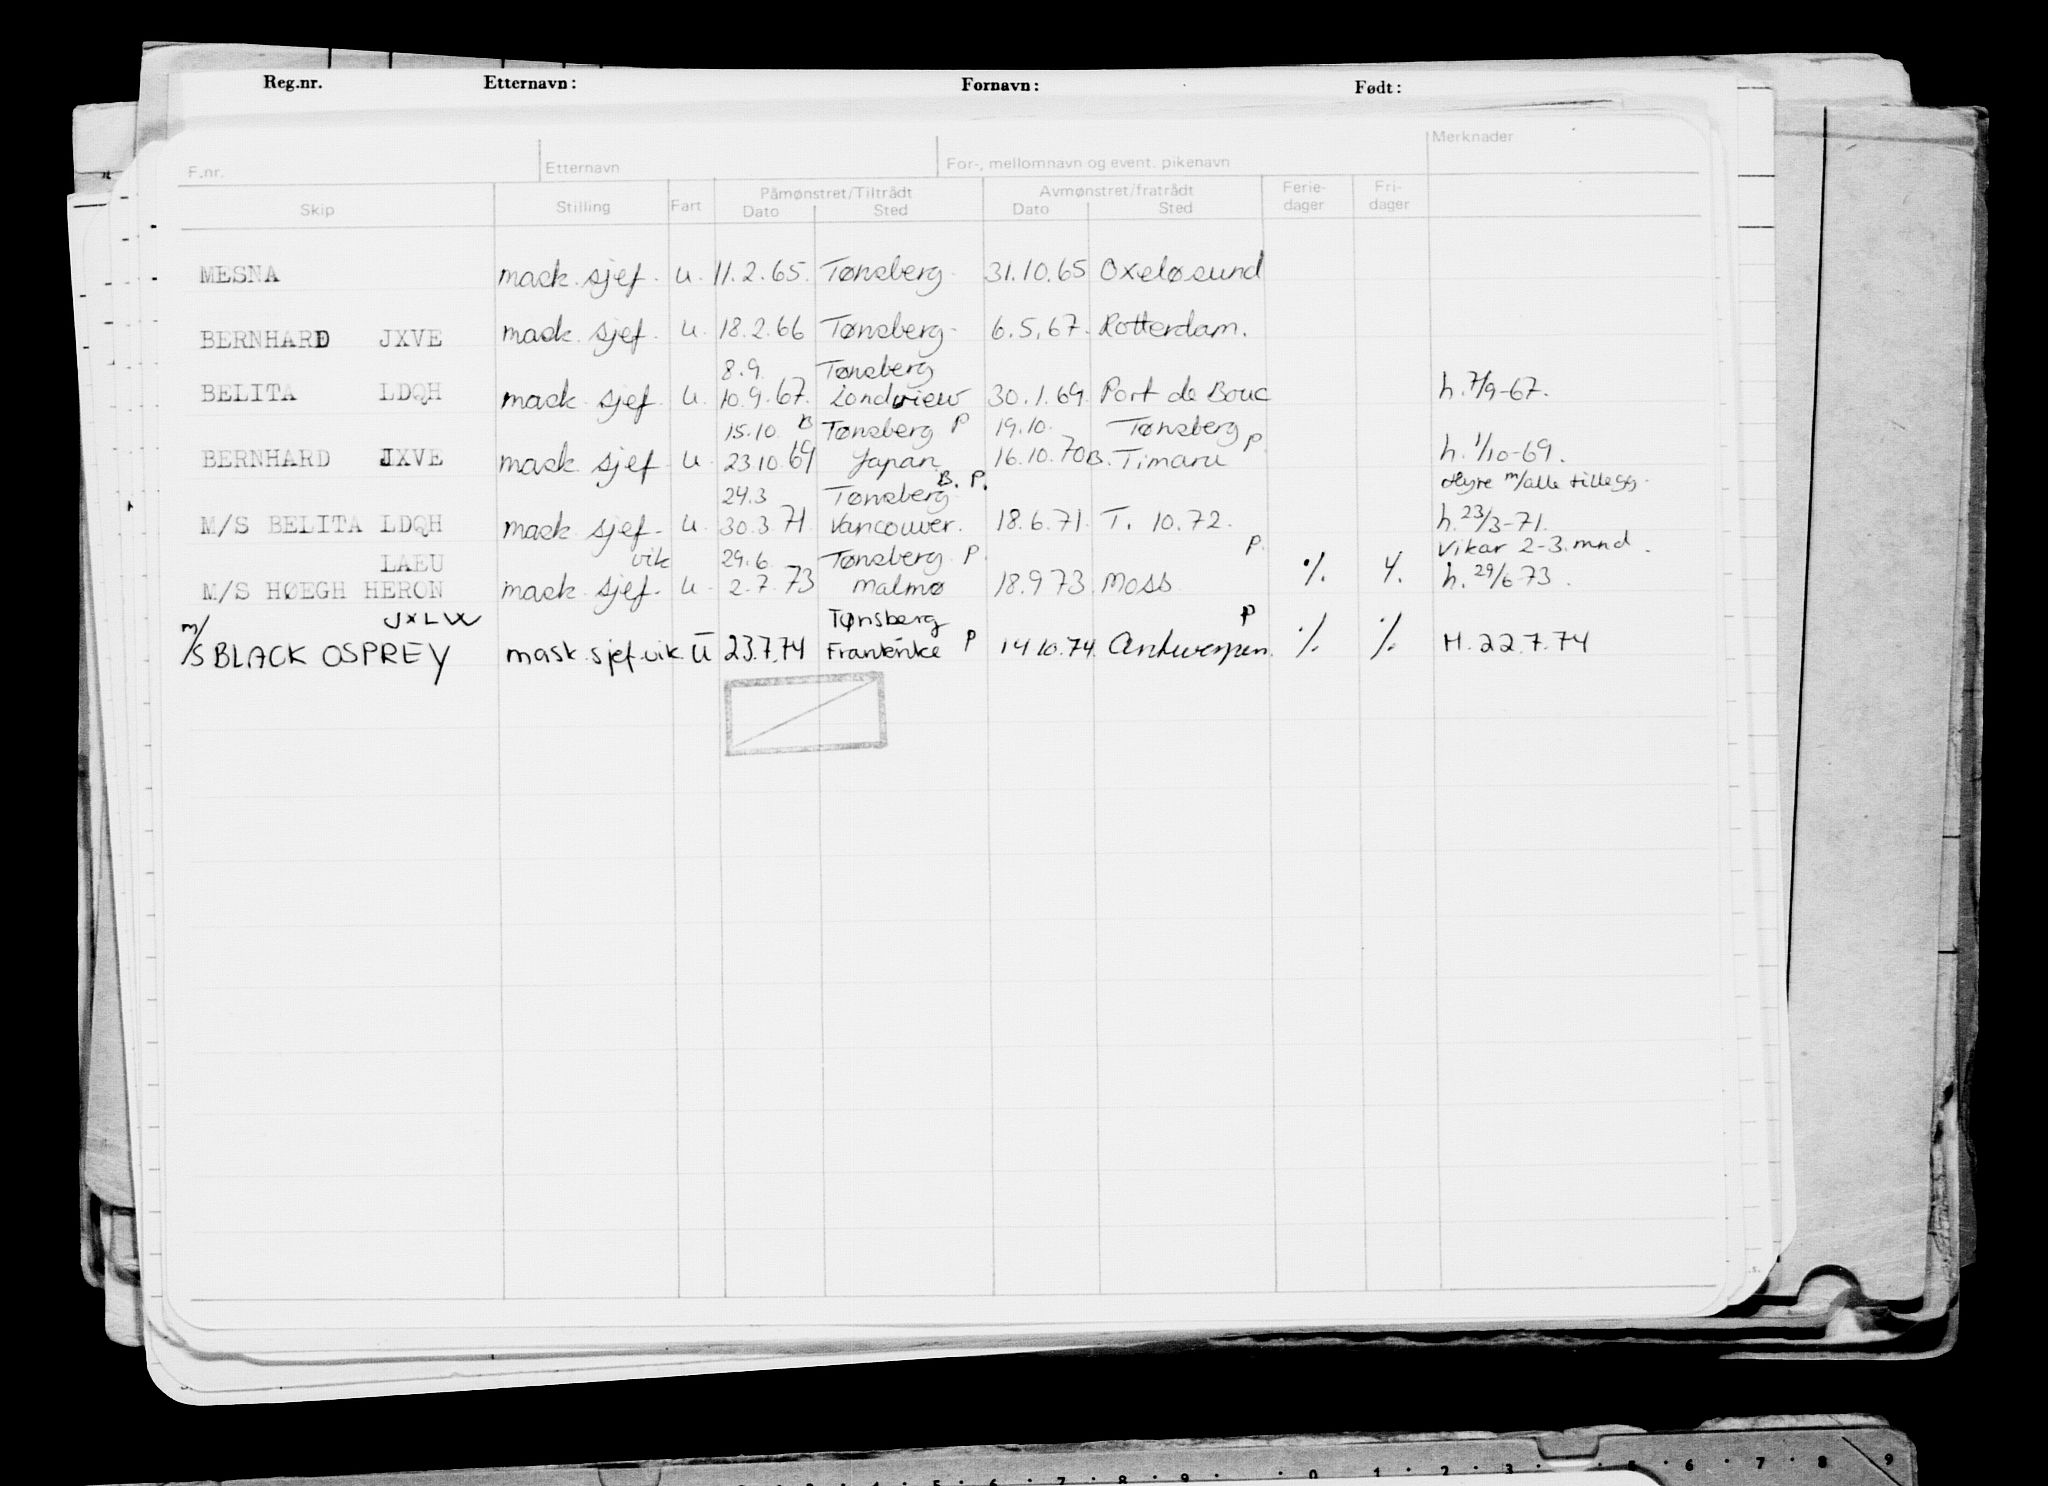 Reg.nr. Etternavn: Fornavn: Født:
F.nr. Etternavn For-, mellomnavn og event. pikenavn Merknader
Skip Stilling Fart Påmønstret/Tiltrådt Avmønstret/fratrådt Ferie- Fri-
Dato Sted Dato Sted dager dager
MESNA mask. sjef. u. 11.2.65. Tønsberg. 31.10.65 Oxeløsund
BERNHARD JXVE mask. sjef. u. 18.2.66 Tønsberg- 6.5.67. Rotterdam.
8.9. Tønsberg
BELITA LDQH mask. sjef. u. 10.9.67. Londview 30.1.69. Port de Bouc h. 7/9-67.
15.10. B Tønsberg P 19.10. Tønsberg
BERNHARD JXVE mask. sjef. u. 23.10.69 Japan. 16.10.70 B. Timaru P. h. 1/10-69.
24.3 Tønsberg B. P. Hyre m/alle tillegg.
M/S BELITA LDQH mask. sjef. u. 30.3.71. Vancouver. 18.6.71. T. 10.72. h. 23/3-71.
LAEU vik 29.6. Tønsberg. P. P. Vikar 2-3. mnd.
M/S HØEGH HERON mask. sjef. u. 2.7.73 Malmø 18.9.73. Moss ./. 4. h. 29/6-73.
JXLW Tønsberg P
m/s BLACK OSPREY mask. sjef. vik. U 23.7.74 P 14.10.74. Antwerpen. ./. ./. H. 22.7.74
5 6 7 8 9 0 1 2 3 5 6 7 8 9